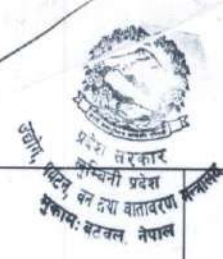 प्रदेश सरकार
लुम्बिनी प्रदेश
उद्योग, पर्यटन, वन तथा वातावरण मन्त्रालय
मुकामः बुटवल, नेपाल